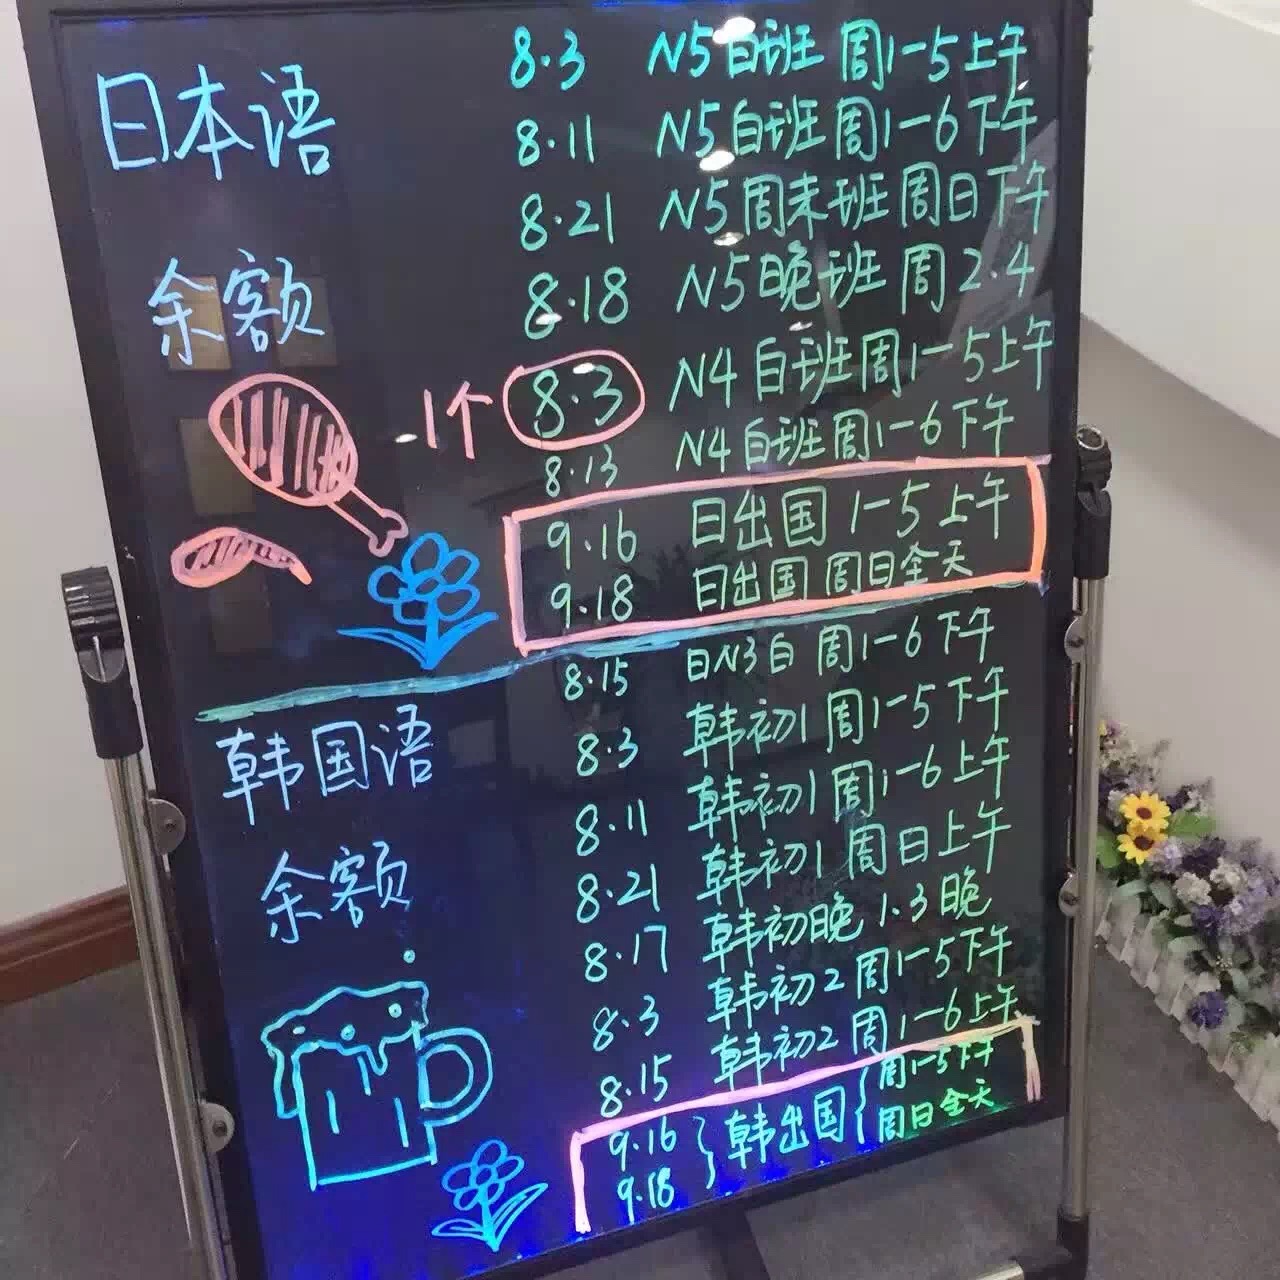 日本语
余额
8.3 N5白班 周1-5上午
8.11 N5白班周1-6下午
8.21 N5周末班 周日下午
8.18 N5晚班 周2.4
1个 8.3 N4白班周1-5上午
8.13 N4白班周1-6下午
9.16 日出国 1-5上午
9.18 日出国 周日全天
8.15 日N3白 周1-6下午
韩国语
余额
8.3 韩初1 周1-5下午
8.11 韩初1 周1-6上午
8.21 韩初1 周日上午
8.17 韩初晚 1.3晚
8.3 韩初2 周1-5下午
8.15 韩初2 周1-6上午
9.16 韩出国 周1-5下午
9.18 周日全天